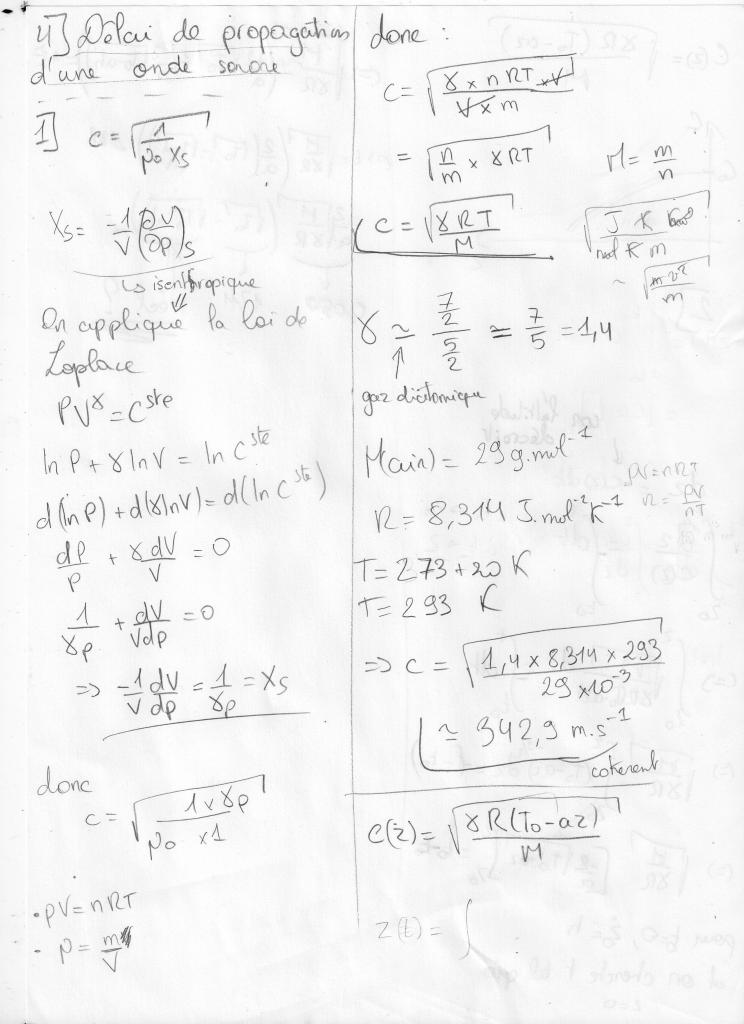 4] Délai de propagation
d'une onde sonore
1] c = √(1/(ρ₀ χs))
χs = -1/V (∂V/∂p)s
↳ isentropique
⇓
On applique la loi de
Laplace
PV^γ = C^ste
ln P + γ ln V = ln C^ste
d(ln P) + d(γ ln V) = d(ln C^ste)
dP/P + γ dV/V = 0
1/(γp) + dV/(V dp) = 0
=> -1/V dV/dp = 1/(γp) = χs
donc
c = √((1 × γp)/(ρ₀ × 1))
• pV = nRT
• ρ = m/V
donc :
c = √((γ × nRT × V)/(V × m))
= √(n/m × γRT)
M = m/n
c = √(γRT/M)
√(J K / mol K m)
~ √(m v²/m)
γ ≃ (7/2)/(5/2) ≃ 7/5 = 1,4
↑
gaz diatomique
M(air) = 29 g.mol⁻¹
pV = nRT
R = pV/nT
R = 8,314 J.mol⁻¹K⁻¹
T = 273 + 20 K
T = 293 K
=> c = √((1,4 × 8,314 × 293)/(29 × 10⁻³))
≃ 342,9 m.s⁻¹
coherent
C(z) = √(γR(T₀ - az)/M)
z(t) = ∫